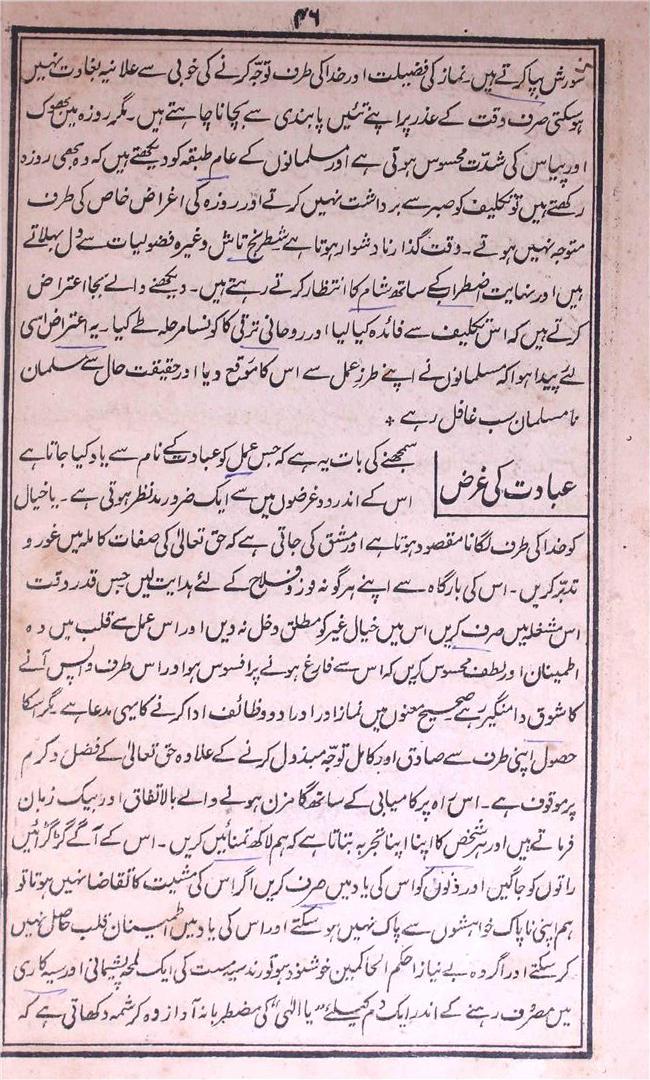 ۴۶
شورش بپا کرتے ہیں۔ نماز کی فضیلت اور خدا کی طرف توجّہ کرنے کی خوبی سے علانیہ بغاوت نہیں
ہوسکتی صرف وقت کے عذر پر اپنے تئیں پابندی سے بچانا چاہتے ہیں۔ مگر روزہ میں بھوک
اور پیاس کی شدّت محسوس ہوتی ہے اور مسلمانوں کے عام طبقہ کو دیکھتے ہیں کہ وہ بھی روزہ
رکھتے ہیں تو تکلیف کو صبر سے برداشت نہیں کرتے اور روزہ کی اغراض خاص کی طرف
متوجہ نہیں ہوتے۔ وقت گذارنا دشوار ہوتا ہے شطرنج تاش وغیرہ فضولیات سے دل بہلاتے
ہیں اور نہایت اضطراب کے ساتھ شام کا انتظار کرتے رہتے ہیں۔ دیکھنے والے بجا اعتراض
کرتے ہیں کہ اس تکلیف سے فائدہ کیا لیا اور روحانی ترقی کا کونسا مرحلہ طے کیا۔ یہ اعتراض اسی
لئے پیدا ہوا کہ مسلمانوں نے اپنے طرز عمل سے اس کا موقع دیا اور حقیقت حال سے مسلمان
نامسلمان سب غافل رہے *
عبادت کی غرض
سمجھنے کی بات یہ ہے کہ جس عمل کو عبادت کے نام سے یاد کیا جاتا ہے
اس کے اندر دو غرضوں میں سے ایک ضرور مدنظر ہوتی ہے۔ یا خیال
کو خدا کی طرف لگانا مقصود ہوتا ہے اور مشق کی جاتی ہے کہ حق تعالیٰ کی صفات کاملہ میں غور و
تدبّر کریں۔ اس کی بارگاہ سے اپنے ہرگونہ فوز و فلاح کے لئے ہدایت لیں جس قدر وقت
اس مشغلہ میں صرف کریں اس میں خیال غیر کو مطلق دخل نہ دیں اور اس عمل سے قلب میں وہ
اطمینان اور لطف محسوس کریں کہ اس سے فارغ ہونے پر افسوس ہو اور اس طرف واپس آنے
کا شوق دامنگیر رہے صحیح معنوں میں نماز اور اوراد و وظائف ادا کرنے کا یہی مدعا ہے مگر اسکا
حصول اپنی طرف سے صادق اور کامل توجّہ مبذول کرنے کے علاوہ حق تعالیٰ کے فضل و کرم
پر موقوف ہے۔ اس راہ پر کامیابی کے ساتھ گامزن ہونے والے بالاتفاق اور بیک زبان
فرماتے ہیں اور ہر شخص کا اپنا اپنا تجربہ بتاتا ہے کہ ہم لاکھ تمنائیں کریں۔ اس کے آگے گڑگڑائیں
راتوں کو جاگیں اور دنوں کو اس کی یاد میں صرف کریں اگر اس کی مشیت کا تقاضا نہیں ہوتا تو
ہم اپنی ناپاک خواہشوں سے پاک نہیں ہوسکتے اور اس کی یاد میں اطمینان قلب حاصل نہیں
کرسکتے اور اگر وہ بے نیاز احکم الحاکمین خوشنود ہو تو رند سیہ مست کی ایک لمحہ پشیمانی اور سیہ کاری
میں مصروف رہنے کے اندر ایک دم کیلئے "یا الٰہی" کی مضطربانہ آواز وہ کرشمہ دکھاتی ہے کہ